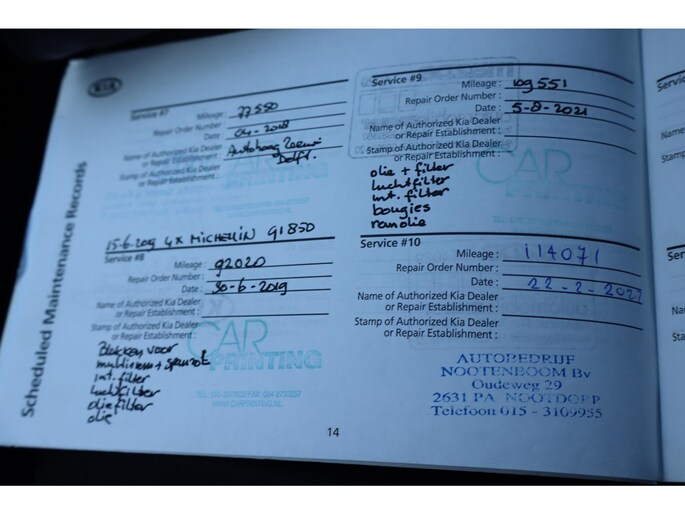 KIA
Scheduled Maintenance Records
Service #7
Mileage : 77550
Repair Order Number :
Date : 04-2018
Name of Authorized Kia Dealer
or Repair Establishment :
Stamp of Authorized Kia Dealer
or Repair Establishment :
Delft.
15-6-2019 4x MICHELIN 91850
Service #8
Mileage : 92020
Repair Order Number :
Date : 30-6-2019
Name of Authorized Kia Dealer
or Repair Establishment :
Stamp of Authorized Kia Dealer
or Repair Establishment :
CAR
PRINTING
Blokken voor
int. filter
luchtfilter
oliefilter
olie
Service #9
Mileage : 109551
Repair Order Number :
Date : 5-8-2021
Name of Authorized Kia Dealer
or Repair Establishment :
Stamp of Authorized Kia Dealer
or Repair Establishment :
CAR
olie + filter
luchtfilter
int. filter
bougies
Service #10
Mileage : 114071
Repair Order Number :
Date : 22-2-2022
Name of Authorized Kia Dealer
or Repair Establishment :
Stamp of Authorized Kia Dealer
or Repair Establishment :
AUTOBEDRIJF
NOOTENBOOM Bv
Oudeweg 29
2631 PA NOOTDORP
Telefoon 015 - 3109955
14